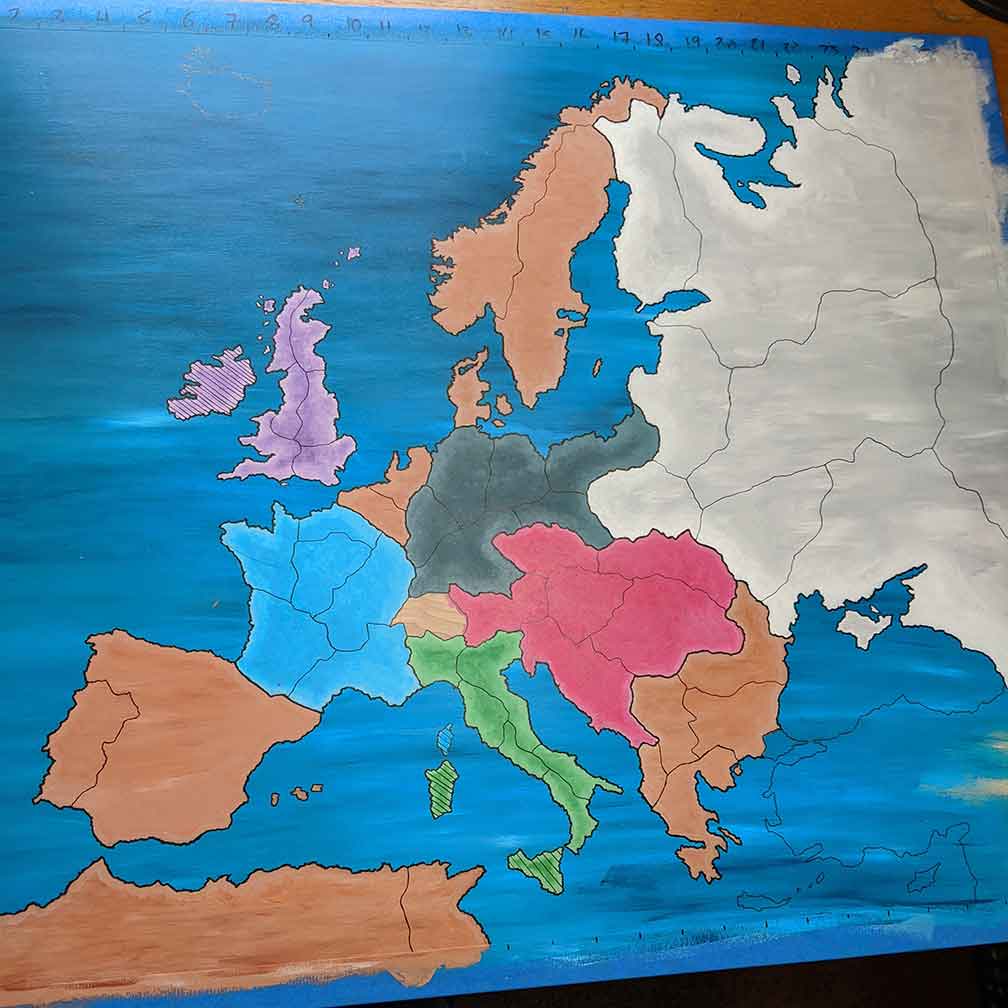 2 3 4 5 6 7 8 9 10 11 12 13 14 15 16 17 18 19 20 21 22 23